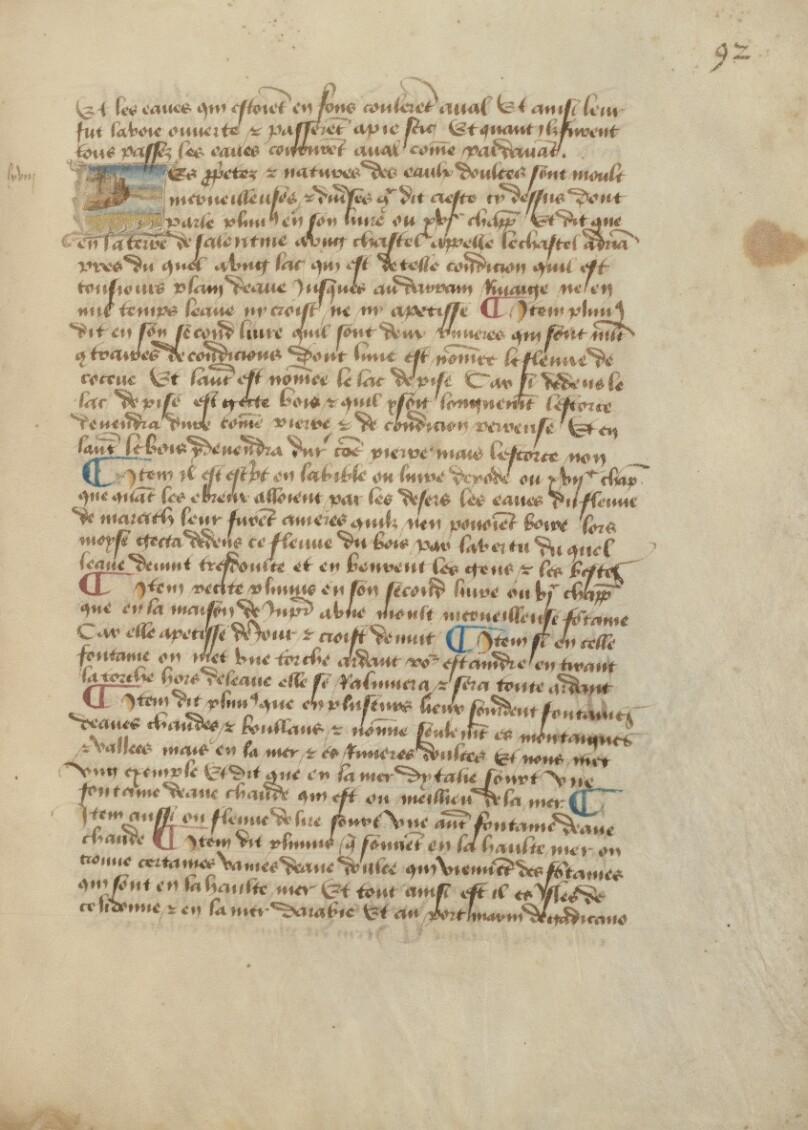 92
Et les eaues qui estoiēt en sons coulerēt aual Et ainsi leur
fut la voie ouuerte ⁊ passerēt a pie sec Et quant ilz furent
tous passez les eaues coururēt aual come pardauāt.
Es ꝓp̄etez ⁊ natures des eaulx doulces sont moult
merueilleuses ⁊ diuēses q̄ dit ceste cy dessus dont
parle plinꝰ en son liure ou chapp̄ Et dit que
en la terre de salentine a vng chastel appelle le chastel adriā
pres du quel a vng lac qui est de telle condicion quil est
tousiours plain deaue Jusques au derrain Riuaige ne en
nul temps leaue ny croist ne ny apetisse ¶ Jtem plinꝰ
dit en son second liure quil sont deux riuieres qui sont mlt̄
q̄traires de condicions Dont lune est nōmee le fleuue de
Et lautr̄ est nōmee le lac de pise Car si dedens le
lac de pise est gecte bois ⁊ quil y soit longuemt̄ lescorce
deuendra dure come pierre ⁊ de condicion perreuse Et en
lautr̄ le bois deuendra dur cōe pierre mais lescorce non
¶ Jtem il est escp̄t en la bible ou liure dexode ou chap̄
que quāt les ebreux alloient par les desers les eaues du fleuue
de marath leur furēt ameres quilz nen pouoiēt boire lors
moyse gecta dedens ce fleuue du bois par la vertu du quel
leaue deuint tresdoulce et en beurent les gens ⁊ les bestes
¶ Jtem recite plinius en son second liure ou vjͤ chapp̄
que en la maison de Jup̄r a vne moult merueilleuse fōtaine
Car elle apetisse de Jour ⁊ croist de nuit ¶ Jtem si en celle
fontaine on met vne torche ardant po᷑ estaindre en tirant
la torche hors de leaue elle se Ralumera ⁊ sera toute ardant
¶ Jtem dit plinꝰ que en plusieurs lieux sourdent fontaines
deaues chaudes ⁊ boullans ⁊ nōnne seulemt̄ es montaignes
⁊ vallees mais en la mer ⁊ es Riuieres doulces Et nous met
vng exemple Et dit que en la mer dytalie sourt vne
fontaine deaue chaude qui est ou meillieu de la mer ¶
Jtem aussi ou fleuue de lire sourt vne autr̄ fontaine deaue
chaude ¶ Jtem dit plinius q̄ souuēt en la haulte mer on
treuue certaines vaines deaue doulce qui viennēt des fōtaines
qui sont en la haulte mer Et tout ainsi est il es ysles de
celidonne ⁊ en la mer darabie Et au port marin de gadicano